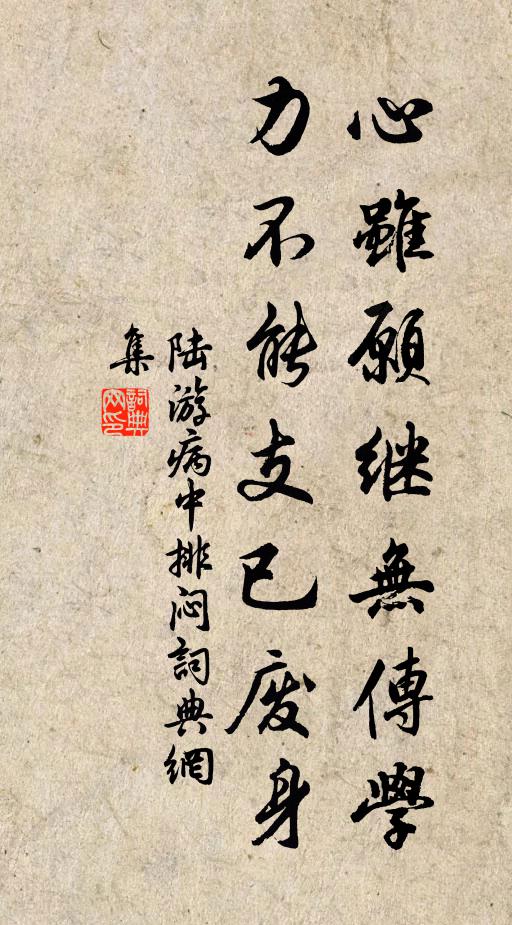 心雖願继無傳學
力不能支已废身
陆游病中排闷詞典網
集
詞典
网印